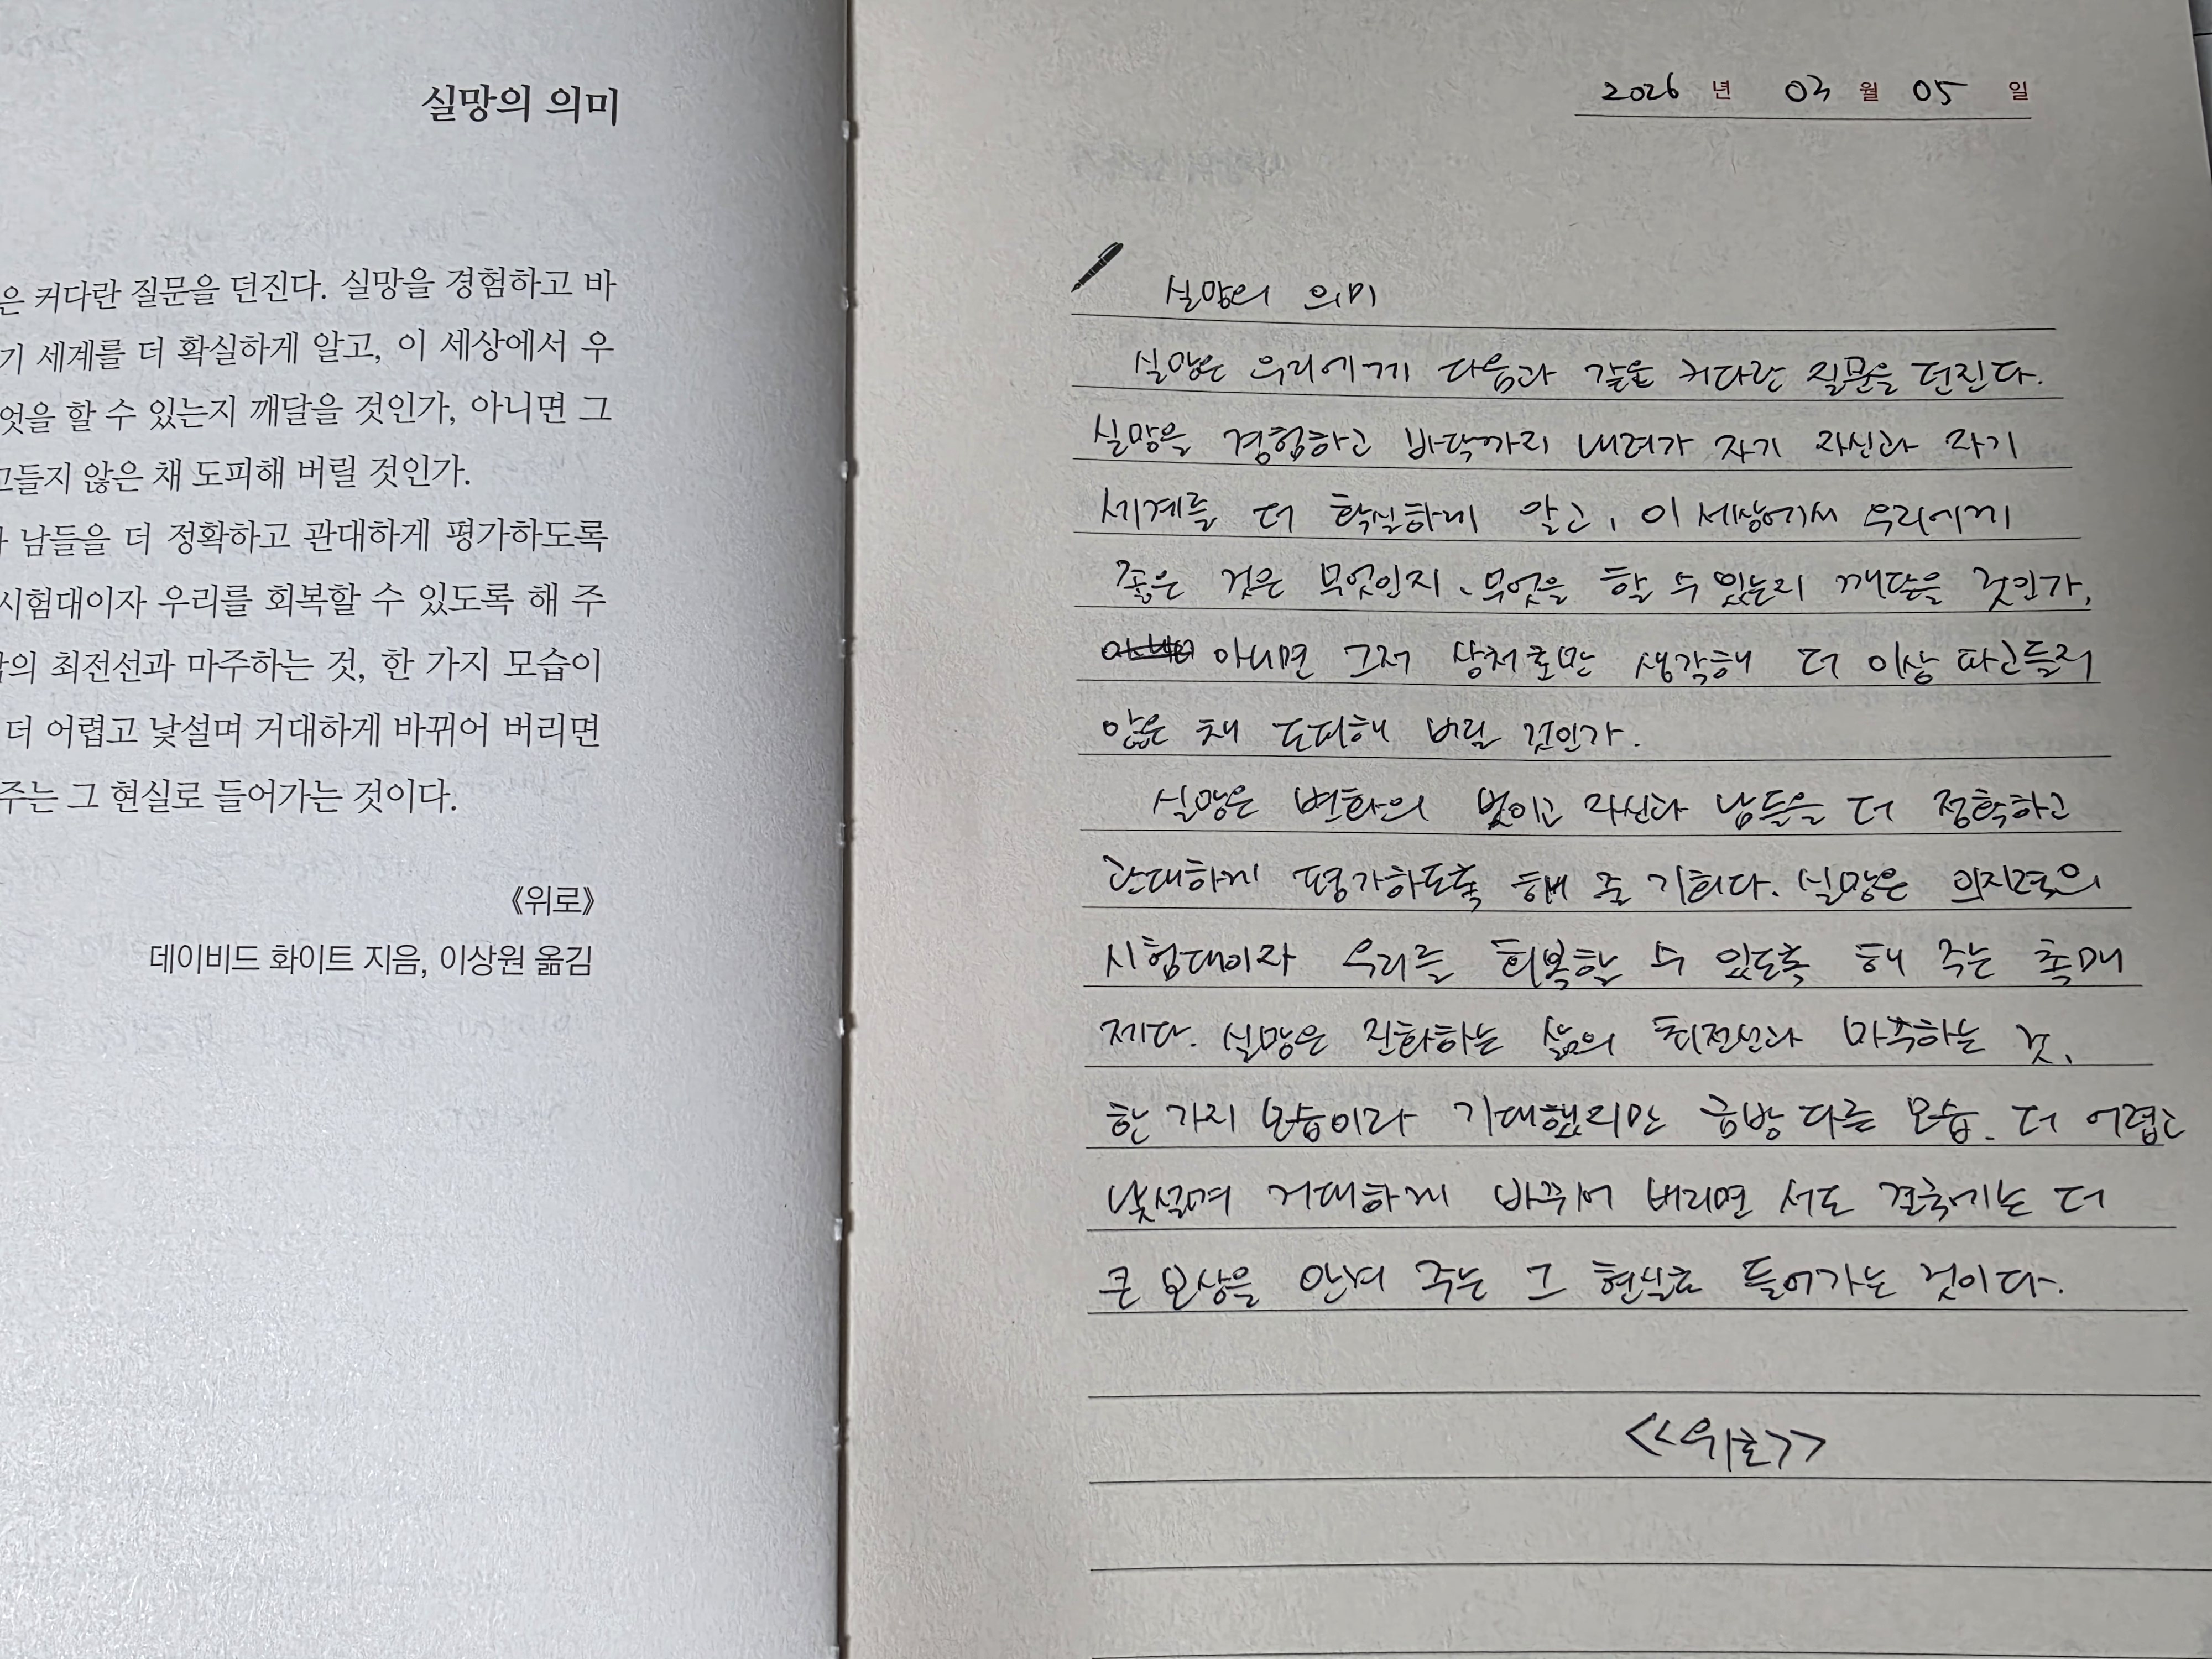 실망의 의미
은 커다란 질문을 던진다. 실망을 경험하고 바
기 세계를 더 확실하게 알고, 이 세상에서 우
엇을 할 수 있는지 깨달을 것인가, 아니면 그
고들지 않은 채 도피해 버릴 것인가.
남들을 더 정확하고 관대하게 평가하도록
시험대이자 우리를 회복할 수 있도록 해 주
의 최전선과 마주하는 것, 한 가지 모습이
더 어렵고 낯설며 거대하게 바뀌어 버리면
주는 그 현실로 들어가는 것이다.
《위로》
데이비드 화이트 지음, 이상원 옮김
2026 년 03 월 05 일
실망의 의미
실망은 우리에게 다음과 같은 커다란 질문을 던진다.
실망을 경험하고 바닥까지 내려가 자기 자신과 자기
세계를 더 확실하게 알고, 이 세상에서 우리에게
좋은 것은 무엇인지, 무엇을 할 수 있는지 깨달을 것인가,
아니면 그저 상처로만 생각해 더 이상 파고들지
않은 채 도피해 버릴 것인가.
실망은 변화의 벗이고 자신과 남들을 더 정확하고
관대하게 평가하도록 해 줄 기회다. 실망은 의지력의
시험대이자 우리를 회복할 수 있도록 해 주는 촉매
제다. 실망은 진화하는 삶의 최전선과 마주하는 것,
한 가지 모습이라 기대했지만 금방 다른 모습, 더 어렵고
낯설며 거대하게 바뀌어 버리면 서도 결국에는 더
큰 보상을 안겨 주는 그 현실로 들어가는 것이다.
<<위로>>